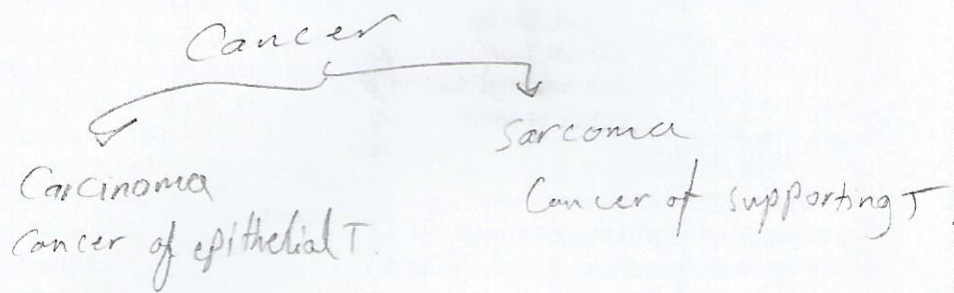 Cancer
Carcinoma
cancer of epithelial T.
Sarcoma
Cancer of supporting T.